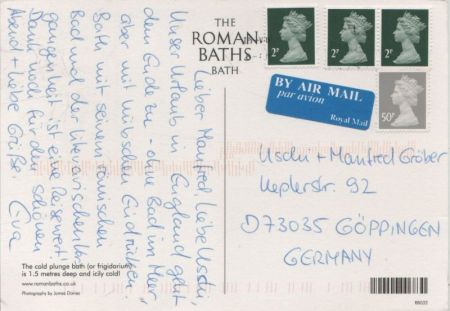 Lieber Manfred, liebe Uschi,
Unser Urlaub in England geht
dem Ende zu - ohne Bad im Meer,
aber mit hübschen Eindrücken.
Bath mit seinem römischen
Bad und der literarischen Ver-
gangenheit ist eine Reise wert!
Dank noch für den schönen
Abend + liebe Grüße Eva
THE
ROMAN
BATHS
BATH
2P
2P
2P
50P
BY AIR MAIL
par avion
Royal Mail
Uschi + Manfred Gröber
Keplerstr. 92
D 73035 GÖPPINGEN
GERMANY
The cold plunge bath (or frigidarium)
is 1.5 metres deep and icily cold!
www.romanbaths.co.uk
Photography by James Davies